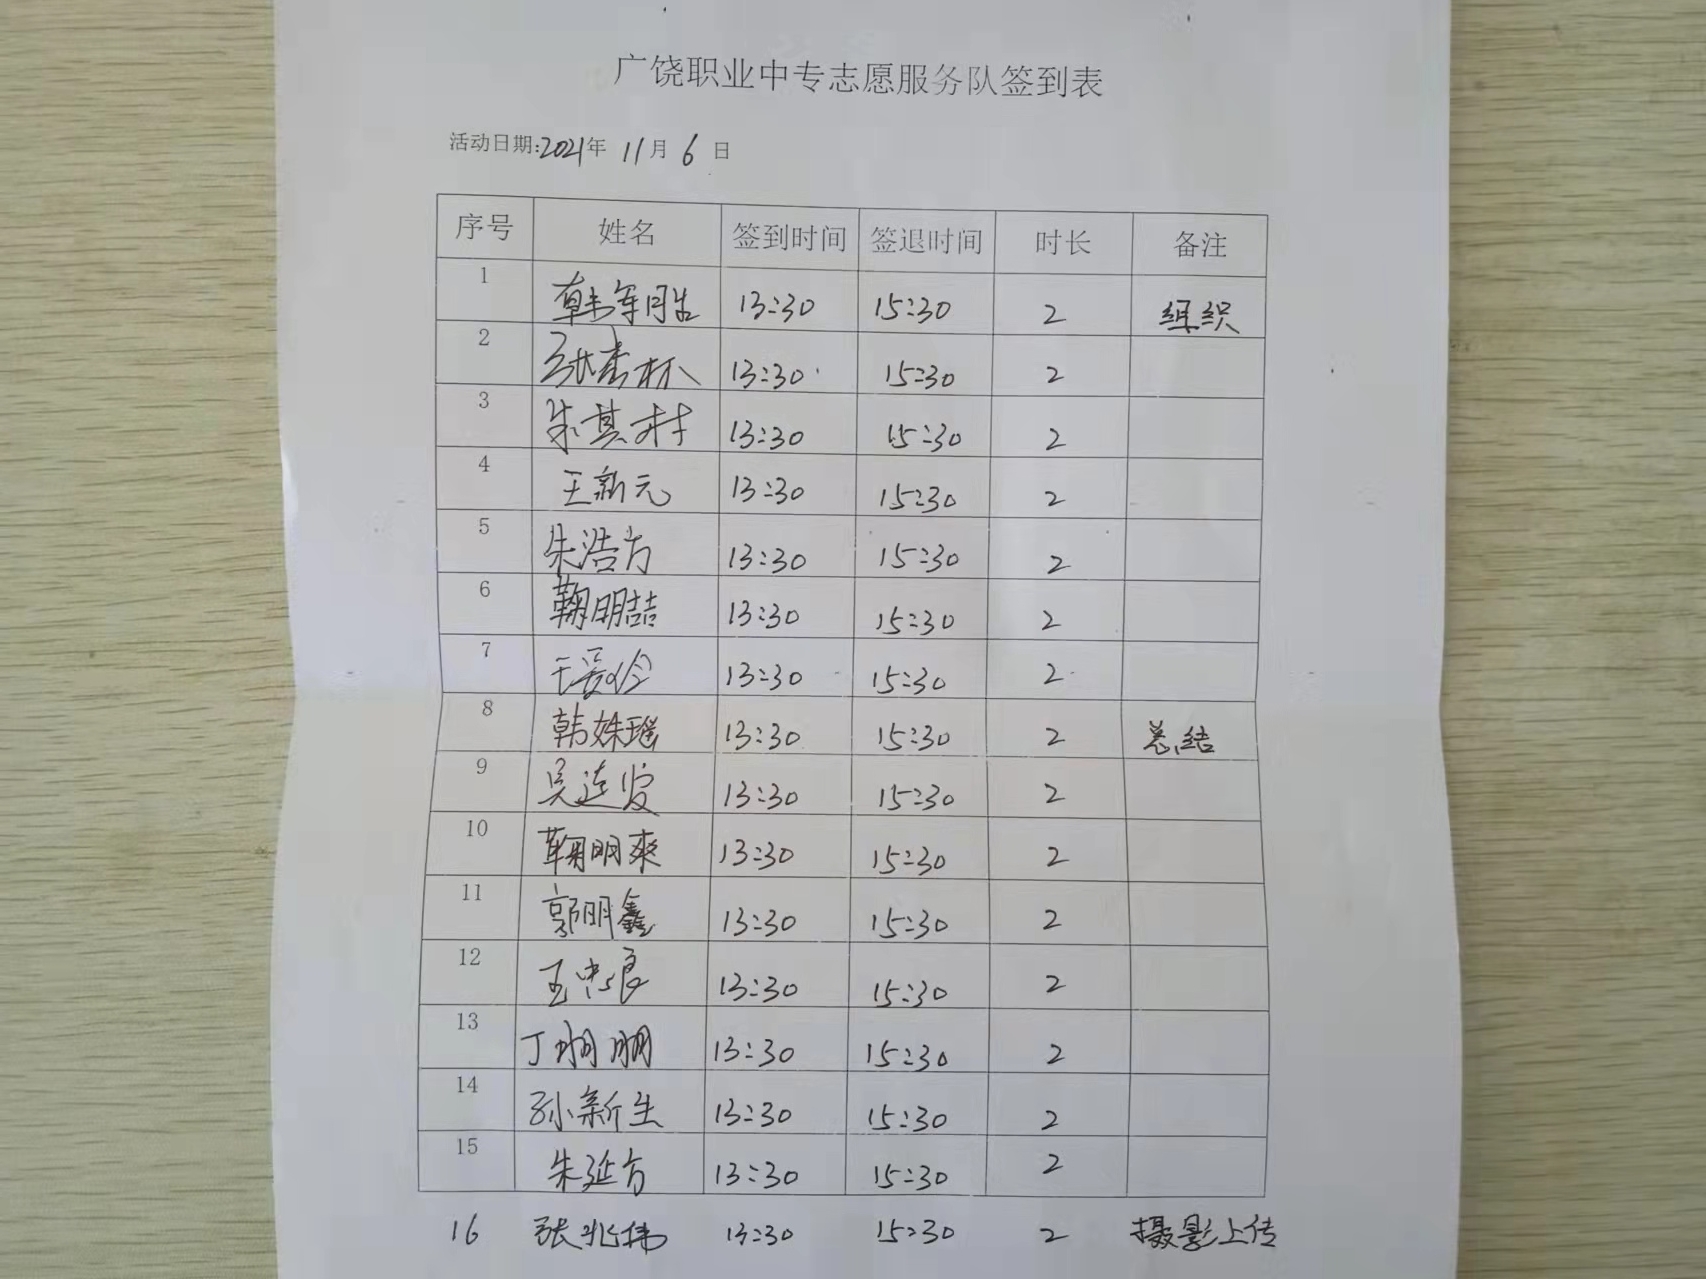 广饶职业中专志愿服务队签到表
活动日期:2021年 11月 6 日
序号 姓名 签到时间 签退时间 时长 备注
1 韩军胜 13:30 15:30 2 组织
2 13:30 15:30 2
3 朱其村 13:30 15:30 2
4 王新元 13:30 15:30 2
5 朱浩方 13:30 15:30 2
6 鞠明喆 13:30 15:30 2
7 13:30 15:30 2
8 韩姝瑶 13:30 15:30 2 总结
9 吴连发 13:30 15:30 2
10 鞠明爽 13:30 15:30 2
11 郭明鑫 13:30 15:30 2
12 13:30 15:30 2
13 13:30 15:30 2
14 孙新生 13:30 15:30 2
15 朱延方 13:30 15:30 2
16 张兆伟 13:30 15:30 2 摄影上传